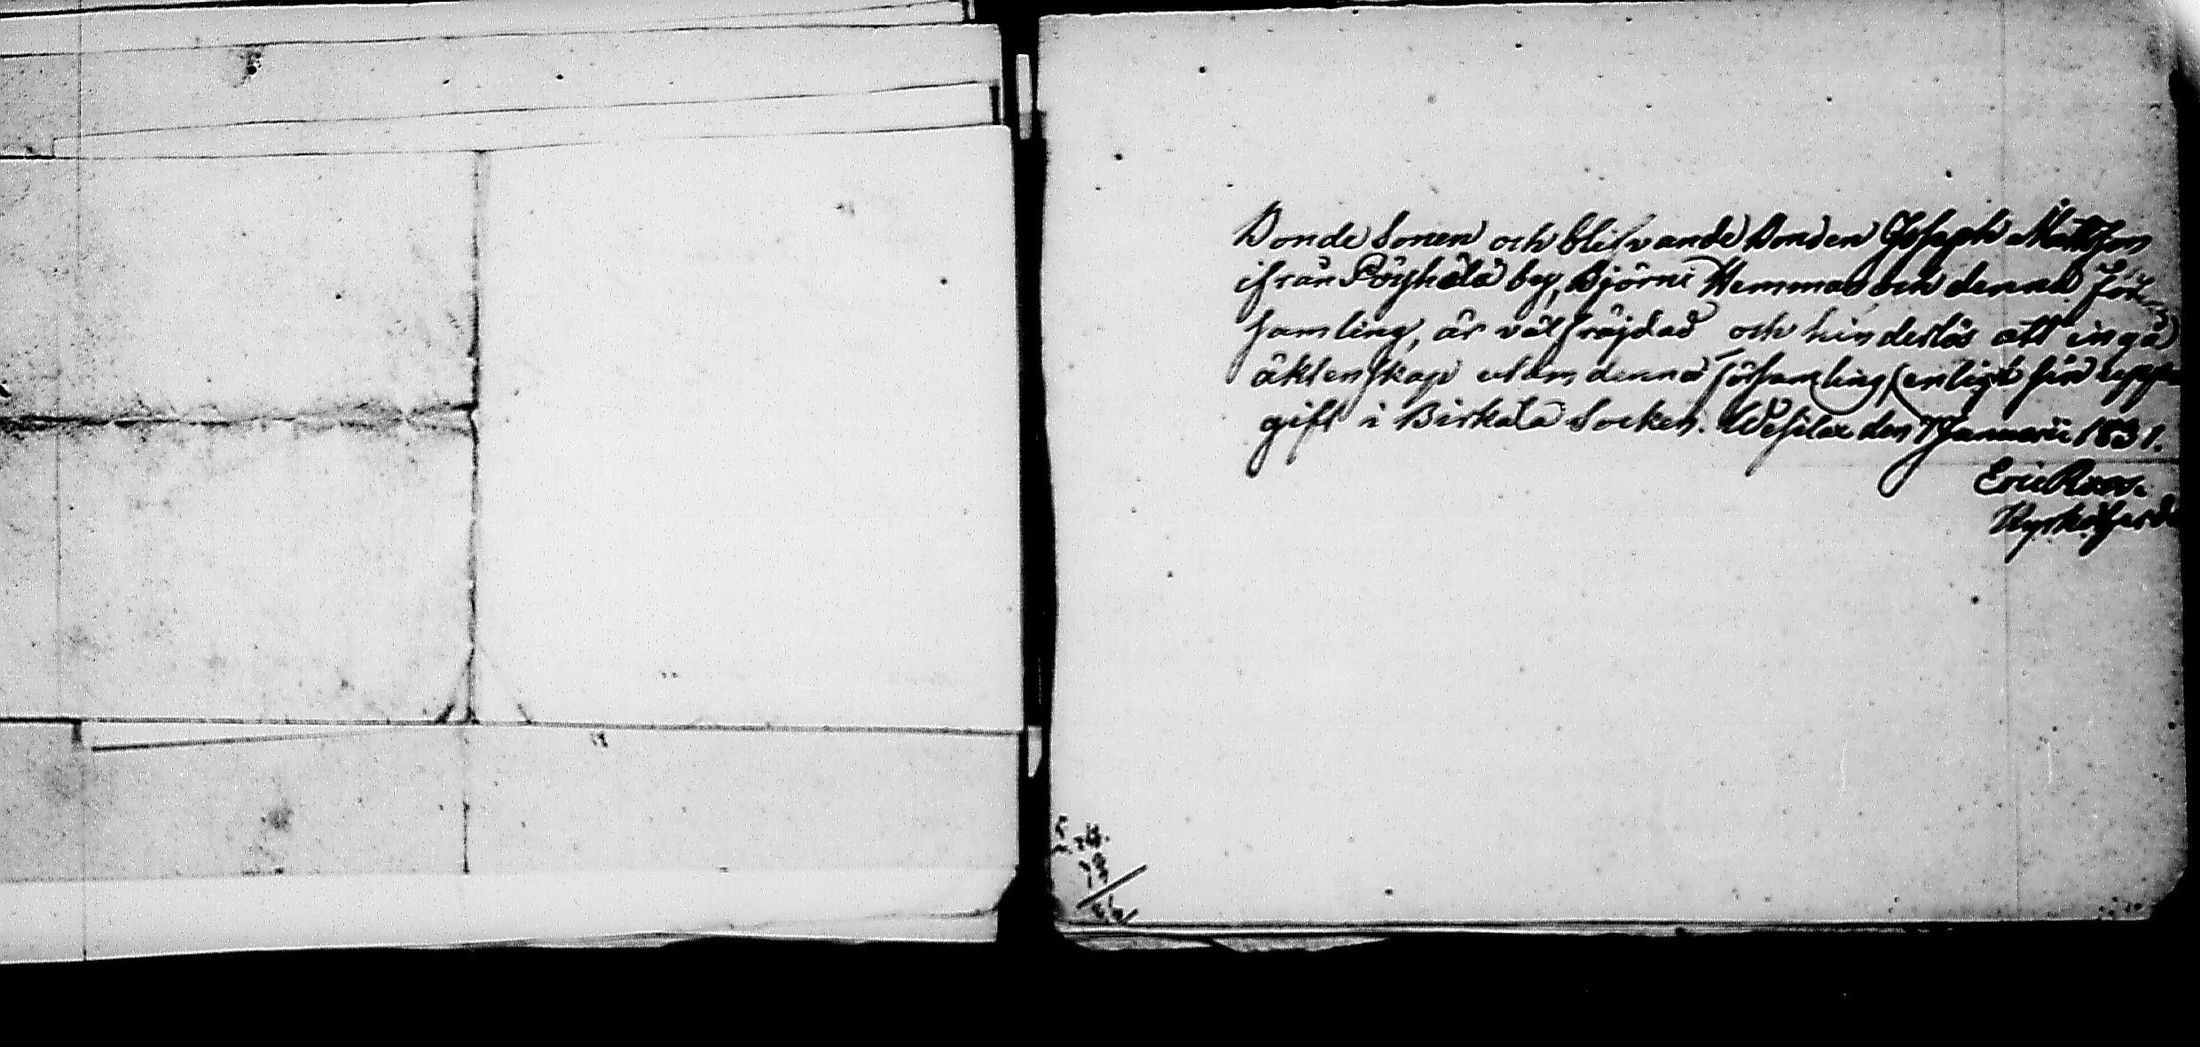 Bonde Sonen och blifvande Bonden Joseph Mattsson
ifrån Pöyhölä by, Björni Hemman och denna för
samling, är välfräjdad och hinderlös att ingå
äktenskap utom denna församling, enligt sin upp
gift i Birkala Socken. Wesilax den 7 Januarii 1831.
Eric Roos.
Kyrkoherde